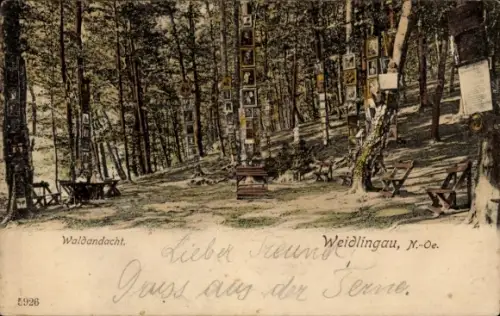 Waldandacht.
Weidlingau, N.-Oe.
Lieber Freund
Gruss aus der Ferne.
5926